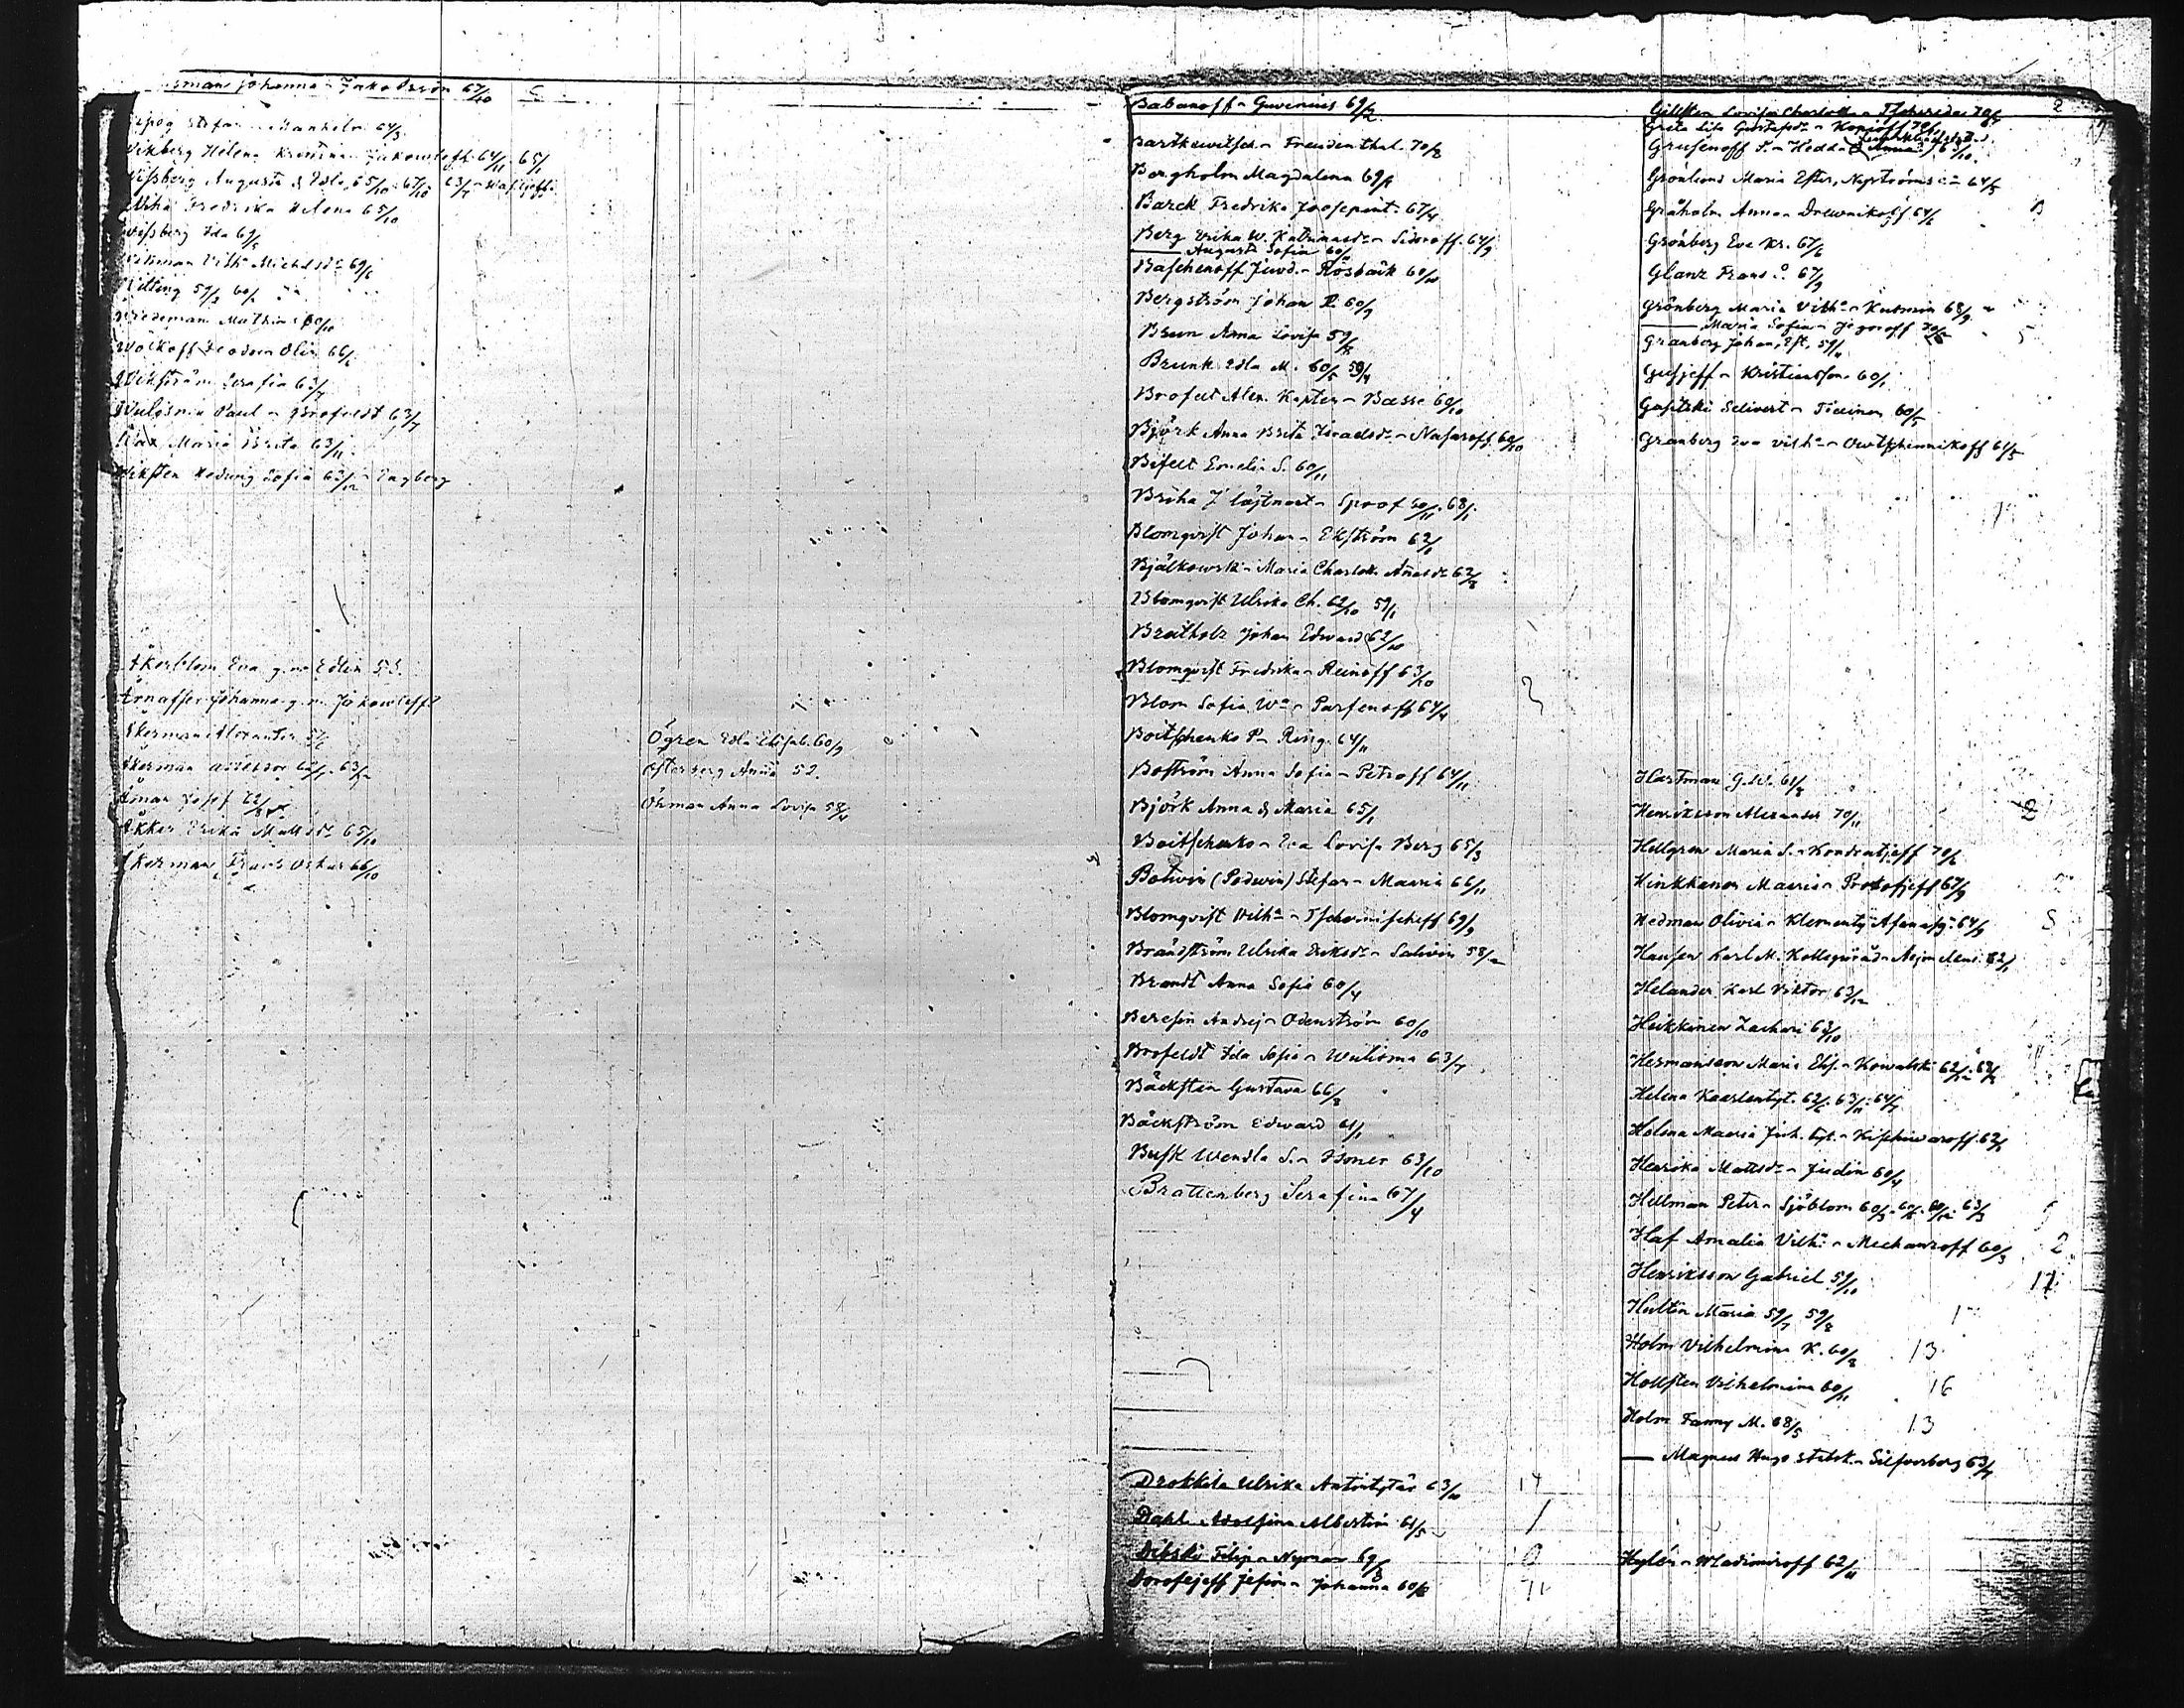 Johanna - Jakobsson 67/10
Stefan - Manhelm 64/3
Wikberg Helena Kristina - Jakowleff 64/11. 65/1
Augusta & Edla 65/10 67/10 63/7
Fredrika Helena 65/10
Ida 69/5
Vilhª Michelsdr 69/6
Witting 59/2 60/1
Wredeman Mathias 60/10
Wolkoff Feodor - Olin 66/6
Wikström Serafia 63/7
Paul - Brofeldt 63/7
Maria Brita 63/11
Wiksten Hedvig Sofia 63/12 - Engberg
Åkerblom Eva g.m. Edlin 53.
Johanna g.m. Jakowleff
Åkerman Alexander 57/6
Åkerman assessor 62/1. 63/2
Åman Josef 62/8
Åkker Erika Mattsdr 65/10
Åkerman Frans Oskar 66/10
Ögren Edla Elisab. 60/9
Österberg Anna 52.
Öhman Anna Lovisa 58/4
Babanoff - Guvenius 69/2
Bartkewitsch - Freudenthal 70/8
Bergholm Magdalena 69/1
Barck Fredrika Joosepint. 67/4
Berg Ulrika W. Katrinasdr - Sidoroff. 64/9
— August Sofia 60/1
Baschenoff Juvd. - Rösbäck 60/10
Bergström Johan R. 60/9
Brun Anna Lovisa 59/8
Brunk Edla M. 60/5 59/4
Brofelt Alex. Kapten - Basse 60/10
Björk Anna Brita Israelsdr - Nasaroff. 60/10
Bifelt Emelia S. 60/11
Briha J löjtnant - Sproof 60/11. 68/1
Blomqvist Johan - Ekström 62/1
Bjälkowski - Maria Charlott. Añasdr 62/8
Blomqvist Ulrika Ch. 62/10 59/1
Breitholz Johan Edward 62/10
Blomqvist Fredrika - Reinoff 63/10
Blom Sofia Wª - Parfenoff 64/4
Boitschenko P - Ring. 64/11
Boström Anna Sofia - Petroff 64/11
Björk Anna & Maria 65/1
Boitschenko - Eva Lovisa Berg 65/3
Botwin (Podwin) Stefan - Maaria 66/11
Blomqvist Vilhª - Tschernischeff 69/9
Brändström Ulrika Eriksdr - Saliwin 58/2
Brandt Anna Sofia 60/4
Beresin Andrej - Odenström 60/10
Brofeldt Ida Sofia - Wulisma 63/7
Bäcksten Gustava 66/8
Bäckström Edward 61/1
Busk Wendla S. - Isoner 63/10
Brattenberg Serafina 67/4
Drokkila Ulrika Antintytär 63/10 14
Dahl Adolfina Albertin 61/5 1
Debski Filip - Nyman 69/8
Dorofejeff Jefim - Johanna 60/8
Gillsten Lovisa Charlotta - 70/5 2
Greta Lisa Gustafsdr - Kopsoff 70/1
Grusenoff S. - Hedda Anna 63/10.
Gronlund Maria Efter, Nyströms 64/5
Gråholm Anna - Drewnikoff 64/6
Grönberg Eva Kr. 67/6
Glanz Frans O. 67/9
Grönberg Maria Vilhª - Kusmin 68/9
— Maria Sofia - Jegoroff 70/5 5
Granberg Johan, Eft. 59/11
Gusjeff - Kristiansson 60/1
Gasitski Selivert - Tiainen 60/5
Granberg Eva Vilhª - Owtschinnikoff 61/5
Hartman G.W. 61/8
Henriksson Alexander 70/11
Hellgren Maria S. - Kondratjeff 70/6
Hinkkanen Maaria - Prokofjeff 67/9
Hedman Olivia - Klementy Afanasj. 64/9 5
Hansen Karl M. Kollegiiråd 62/1
Helander Karl Viktor 63/12
Heikkinen Zachari 63/10
Hermansson Maria Elis. - Kowalski 62/12. 62/2
Helena Kaarlentyt. 62/6. 63/11. 64/7
Helena Maaria Juh. tyt. - Kischiwaroff. 62/5
Henrika Mattsdr - Judin 60/4
Hellman Peter - Sjöblom 60/3. 60/5. 60/12. 63/3
Haf Amalia Vilhª - Mechanoff 60/3 2
Henriksson Gabriel 59/10 17
Hultin Maria 59/7 59/8 1
Holm Vilhelmina K. 60/2 13
Hollsten Vilhelmina 60/11 16
Holm Fanny M. 68/5 13
— Magnus Hugo stabsk. - Silfversborg 63/7
Hylén - Wladimiroff 62/11